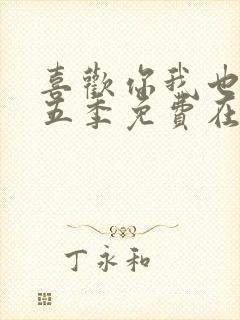 喜歡你我也
五季免費在
丁永和